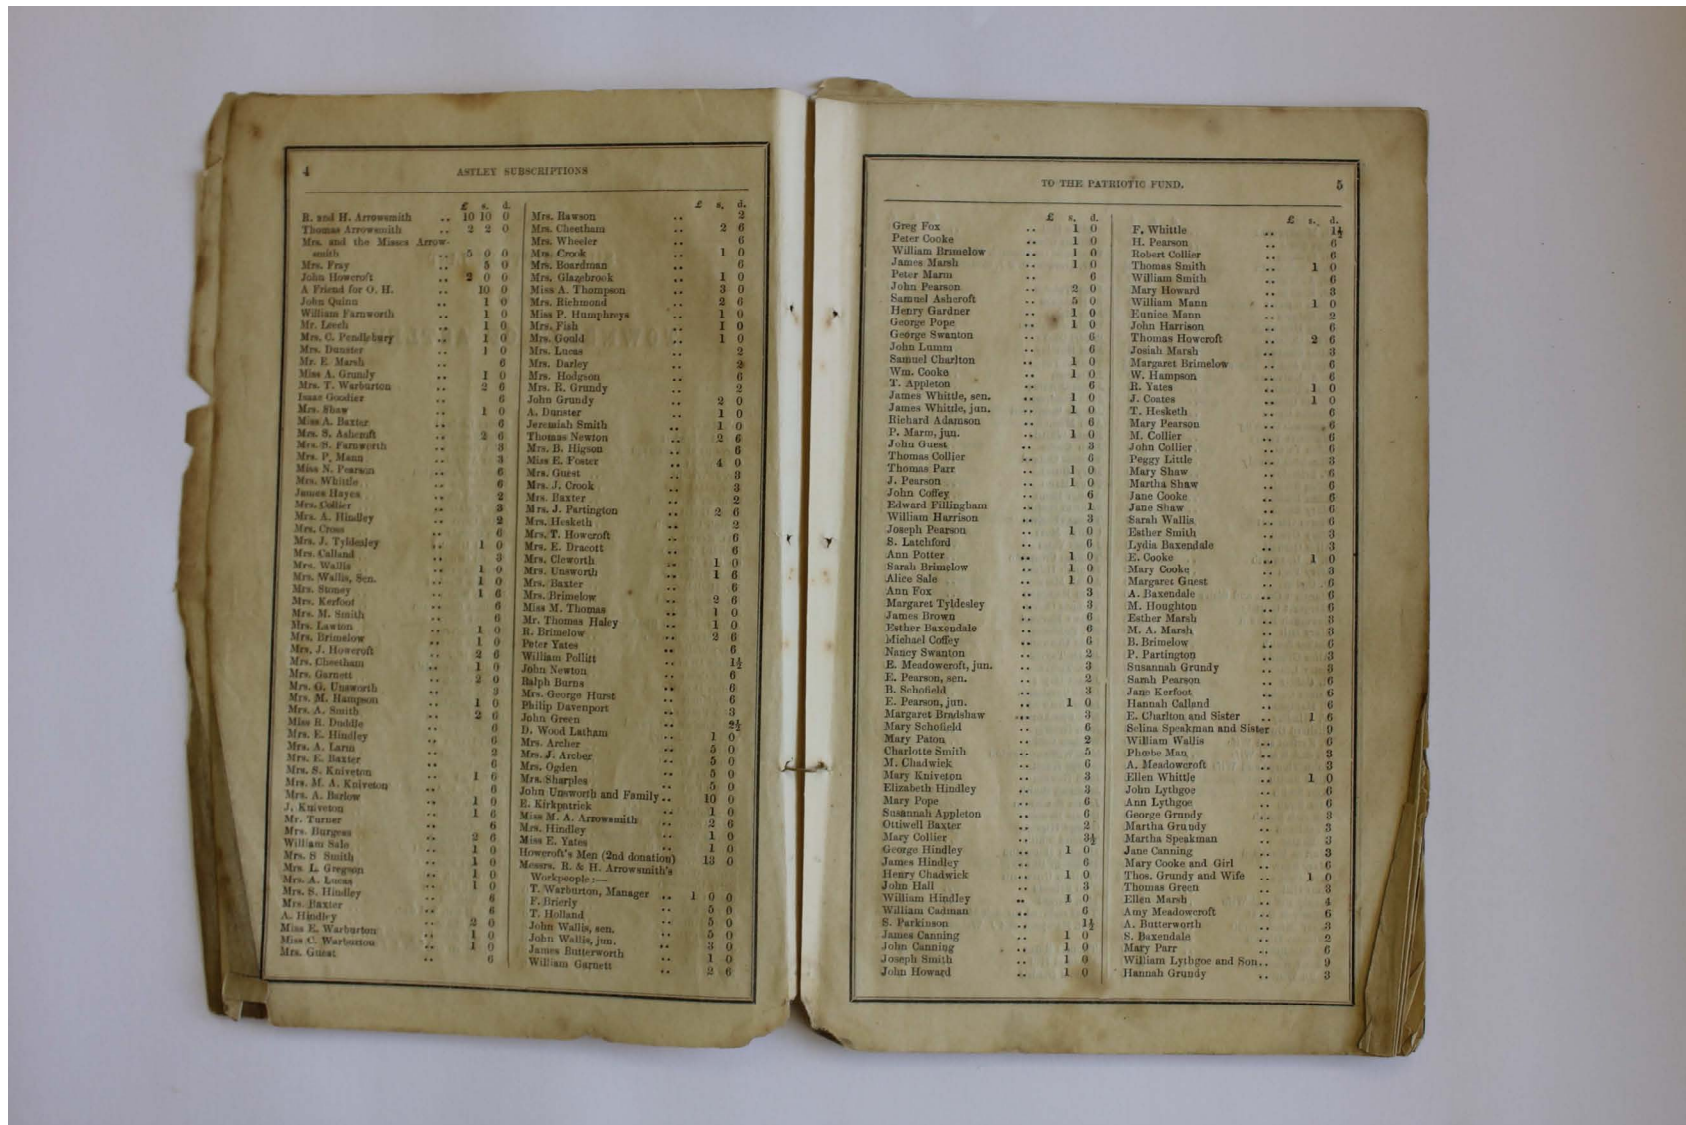 4 ASTLEY SUBSCRIPTIONS
£ s. d.
R. and H. Arrowsmith .. 10 10 0
Thomas Arrowsmith .. 2 2 0
Mrs. and the Misses Arrow-
smith .. 5 0 0
Mrs. Fray .. 5 0
John Howcroft .. 2 0 0
A Friend for O. H. .. 10 0
John Quinn .. 1 0
William Farnworth .. 1 0
Mr. Leech .. 1 0
Mrs. C. Pendlebury .. 1 0
Mrs. Dunster .. 1 0
Mr. E. Marsh .. 6
Miss A. Grundy .. 1 0
Mrs. T. Warburton .. 2 6
Isaac Goodier .. 6
Mrs. Shaw .. 1 0
Miss A. Baxter .. 6
Mrs. S. Ashcroft .. 2 6
Mrs. S. Farnworth .. 3
Mrs. P. Mann .. 3
Miss N. Pearson .. 6
Mrs. Whittle .. 6
James Hayes .. 2
Mrs. Collier .. 3
Mrs. A. Hindley .. 2
Mrs. Cross .. 6
Mrs. J. Tyldesley .. 1 0
Mrs. Calland .. 3
Mrs. Wallis .. 1 0
Mrs. Wallis, Sen. .. 1 0
Mrs. Stoney .. 1 6
Mrs. Kerfoot .. 6
Mrs. M. Smith .. 6
Mrs. Lawton .. 1 0
Mrs. Brimelow .. 1 0
Mrs. J. Howcroft .. 2 6
Mrs. Cheetham .. 1 0
Mrs. Garnett .. 2 0
Mrs. G. Unsworth .. 3
Mrs. M. Hampson .. 1 0
Mrs. A. Smith .. 2 6
Miss R. Doddle .. 6
Mrs. E. Hindley .. 6
Mrs. A. Larm .. 2
Mrs. E. Baxter .. 6
Mrs. S. Kniveton .. 1 6
Mrs. M. A. Kniveton .. 6
Mrs. A. Barlow .. 1 0
J. Kniveton .. 1 6
Mr. Turner .. 6
Mrs. Burgess .. 2 6
William Sale .. 1 0
Mrs. S Smith .. 1 0
Mrs. L. Gregson .. 1 0
Mrs. A. Lucas .. 1 0
Mrs. S. Hindley .. 6
Mrs. Baxter .. 6
A. Hindley .. 2 0
Miss E. Warburton .. 1 0
Miss C. Warburton .. 1 0
Mrs. Guest .. 6
£ s. d.
Mrs. Rawson .. 2
Mrs. Cheetham .. 2 6
Mrs. Wheeler .. 6
Mrs. Crook .. 1 0
Mrs. Boardman .. 6
Mrs. Glazebrook .. 1 0
Miss A. Thompson .. 3 0
Mrs. Richmond .. 2 6
Miss P. Humphreys .. 1 0
Mrs. Fish .. 1 0
Mrs. Gould .. 1 0
Mrs. Lucas .. 2
Mrs. Darley .. 2
Mrs. Hodgson .. 6
Mrs. R. Grundy .. 2
John Grundy .. 2 0
A. Dunster .. 1 0
Jeremiah Smith .. 1 0
Thomas Newton .. 2 6
Mrs. B. Higson .. 6
Miss E. Foster .. 4 0
Mrs. Guest .. 3
Mrs. J. Crook .. 3
Mrs. Baxter .. 2
Mrs. J. Partington .. 2 6
Mrs. Hesketh .. 2
Mrs. T. Howcroft .. 6
Mrs. E. Dracott .. 6
Mrs. Cleworth .. 1 0
Mrs. Unsworth .. 1 6
Mrs. Baxter .. 6
Mrs. Brimelow .. 2 6
Miss M. Thomas .. 1 0
Mr. Thomas Haley .. 1 0
R. Brimelow .. 2 6
Peter Yates .. 6
William Pollitt .. 1½
John Newton .. 6
Ralph Burns .. 6
Mrs. George Hurst .. 6
Philip Davenport .. 3
John Green .. 2½
D. Wood Latham .. 1 0
Mrs. Archer .. 5 0
Mrs. J. Archer .. 5 0
Mrs. Ogden .. 5 0
Mrs. Sharples .. 5 0
John Unsworth and Family .. 10 0
E. Kirkpatrick .. 1 0
Miss M. A. Arrowsmith .. 2 6
Mrs. Hindley .. 1 0
Miss E. Yates .. 1 0
Howcroft's Men (2nd donation) 13 0
Messrs. R. & H. Arrowsmith's
Workpeople:—
T. Warburton, Manager .. 1 0 0
F. Brierly .. 5 0
T. Holland .. 5 0
John Wallis, sen. .. 5 0
John Wallis, jun. .. 3 0
James Butterworth .. 1 0
William Garnett .. 2 6
TO THE PATRIOTIC FUND. 5
£ s. d.
Greg Fox .. 1 0
Peter Cooke .. 1 0
William Brimelow .. 1 0
James Marsh .. 1 0
Peter Marm .. 6
John Pearson .. 2 0
Samuel Ashcroft .. 5 0
Henry Gardner .. 1 0
George Pope .. 1 0
George Swanton .. 6
John Lumm .. 6
Samuel Charlton .. 1 0
Wm. Cooke .. 1 0
T. Appleton .. 6
James Whittle, sen. .. 1 0
James Whittle, jun. .. 1 0
Richard Adamson .. 6
P. Marm, jun. .. 1 0
John Guest .. 3
Thomas Collier .. 6
Thomas Parr .. 1 0
J. Pearson .. 1 0
John Coffey .. 6
Edward Fillingham .. 1
William Harrison .. 3
Joseph Pearson .. 1 0
S. Latchford .. 6
Ann Potter .. 1 0
Sarah Brimelow .. 1 0
Alice Sale .. 1 0
Ann Fox .. 3
Margaret Tyldesley .. 3
James Brown .. 6
Esther Baxendale .. 6
Michael Coffey .. 6
Nancy Swanton .. 2
E. Meadowcroft, jun. .. 3
E. Pearson, sen. .. 2
B. Schofield .. 3
E. Pearson, jun. .. 1 0
Margaret Bradshaw .. 3
Mary Schofield .. 6
Mary Paton .. 2
Charlotte Smith .. 5
M. Chadwick .. 6
Mary Kniveton .. 3
Elizabeth Hindley .. 3
Mary Pope .. 6
Susannah Appleton .. 6
Ottiwell Baxter .. 2
Mary Collier .. 3½
George Hindley .. 1 0
James Hindley .. 6
Henry Chadwick .. 1 0
John Hall .. 3
William Hindley .. 1 0
William Cadman .. 6
S. Parkinson .. 1½
James Canning .. 1 0
John Canning .. 1 0
Joseph Smith .. 1 0
John Howard .. 1 0
£ s. d.
F. Whittle .. 1½
H. Pearson .. 6
Robert Collier .. 6
Thomas Smith .. 1 0
William Smith .. 6
Mary Howard .. 3
William Mann .. 1 0
Eunice Mann .. 2
John Harrison .. 6
Thomas Howcroft .. 2 6
Josiah Marsh .. 3
Margaret Brimelow .. 6
W. Hampson .. 6
R. Yates .. 1 0
J. Coates .. 1 0
T. Hesketh .. 6
Mary Pearson .. 6
M. Collier .. 6
John Collier .. 6
Peggy Little .. 3
Mary Shaw .. 6
Martha Shaw .. 6
Jane Cooke .. 6
Jane Shaw .. 6
Sarah Wallis .. 6
Esther Smith .. 3
Lydia Baxendale .. 3
E. Cooke .. 1 0
Mary Cooke .. 3
Margaret Guest .. 6
A. Baxendale .. 6
M. Houghton .. 6
Esther Marsh .. 3
M. A. Marsh .. 3
B. Brimelow .. 6
P. Partington .. 3
Susannah Grundy .. 3
Sarah Pearson .. 6
Jane Kerfoot .. 6
Hannah Calland .. 6
E. Charlton and Sister .. 1 6
Selina Speakman and Sister 9
William Wallis .. 6
Phœbe Man .. 3
A. Meadowcroft .. 3
Ellen Whittle .. 1 0
John Lythgoe .. 6
Ann Lythgoe .. 6
George Grundy .. 3
Martha Grundy .. 3
Martha Speakman .. 3
Jane Canning .. 3
Mary Cooke and Girl .. 6
Thos. Grundy and Wife .. 1 0
Thomas Green .. 3
Ellen Marsh .. 4
Amy Meadowcroft .. 6
A. Butterworth .. 3
S. Baxendale .. 2
Mary Parr .. 6
William Lythgoe and Son.. 9
Hannah Grundy .. 3